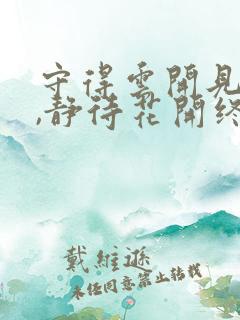 守得雲開見
,静待花開終
戴維遜
未经同意禁止转载